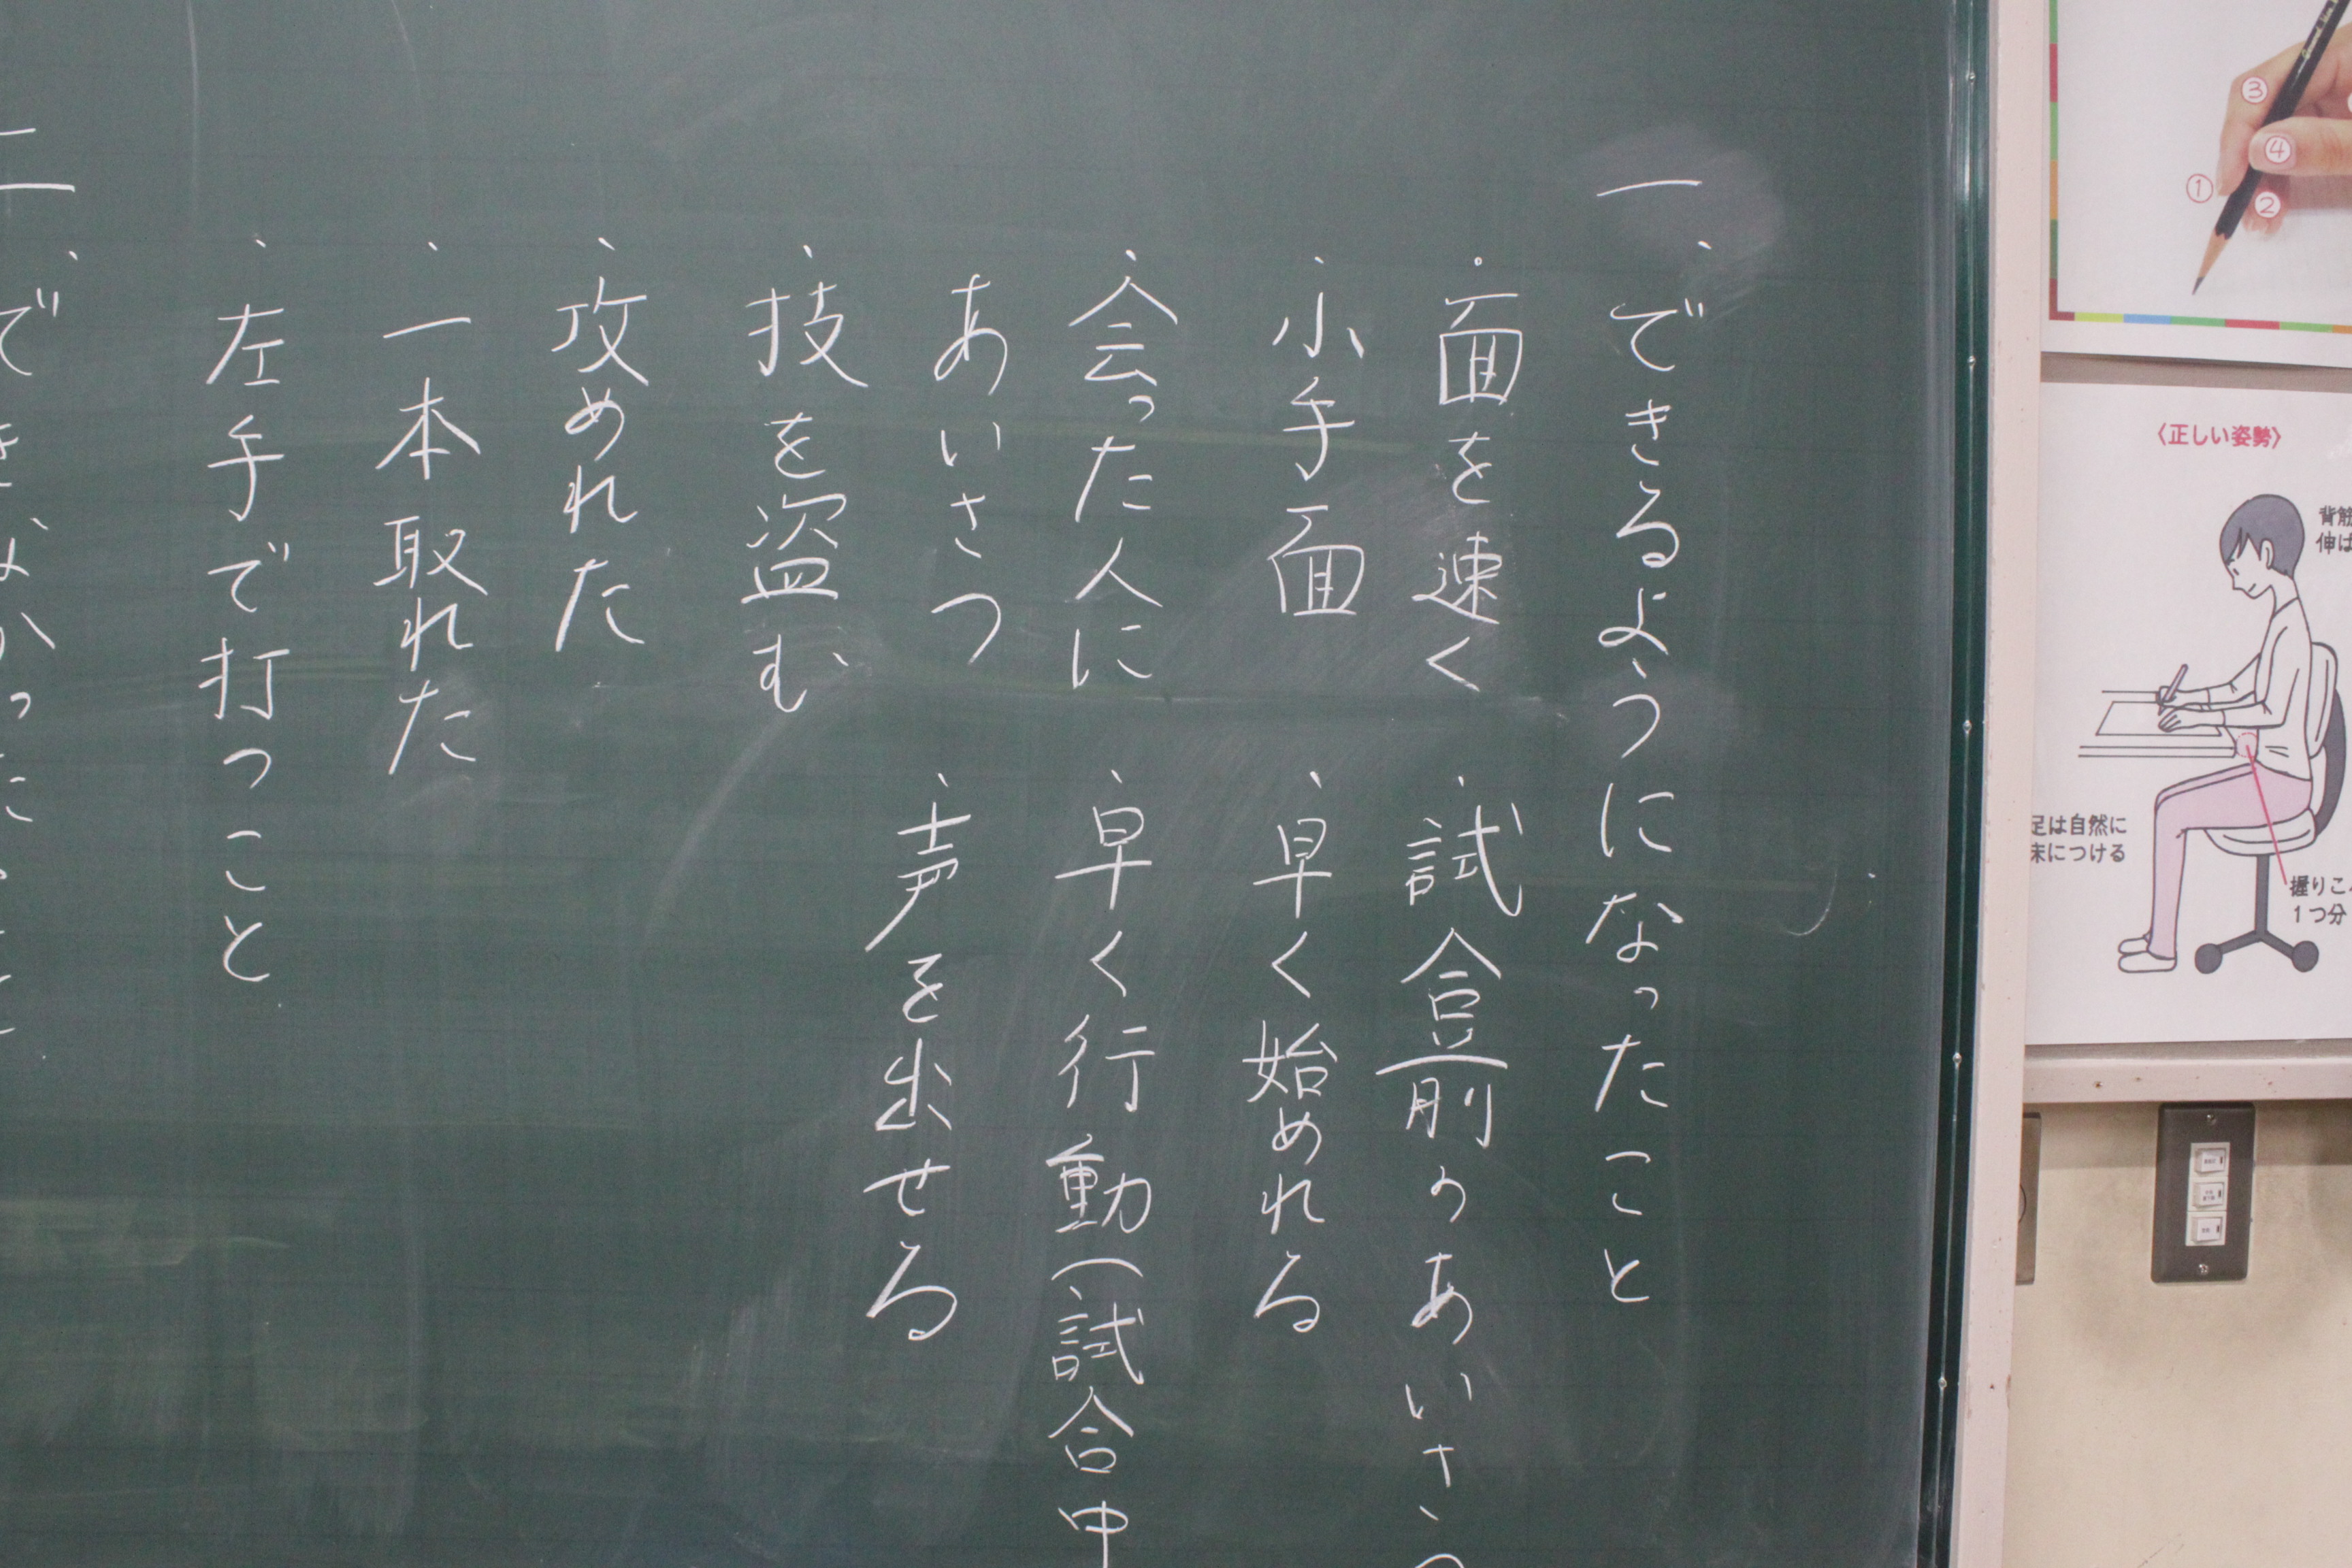 一、できるようになったこと
・面を速く
・試合前のあいさつ
・小手面
・早く始めれる
・会った人に
あいさつ
・早く行動(試合中
・声を出せる
・技を盗む
・攻めれた
・一本取れた
・左手で打つこと
二、できなかったこと
③
④
①
②
〈正しい姿勢〉
背筋
伸ば
足は自然に
床につける
握りこ
1つ分